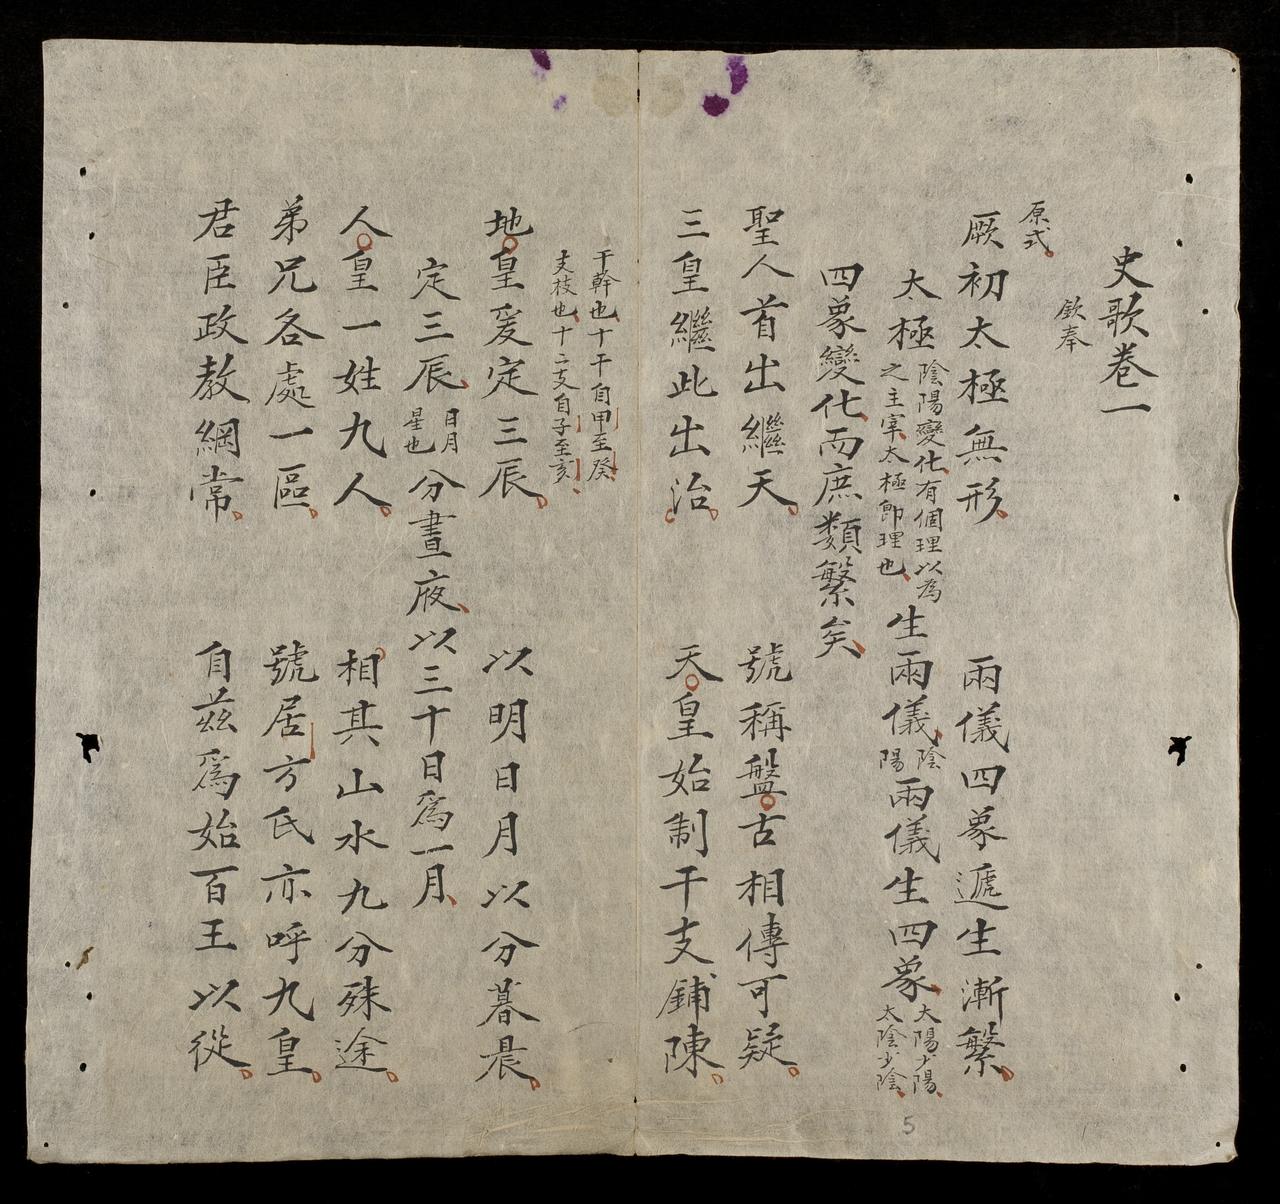 史歌卷一
欽奉
原式
厥初太極無形 兩儀四象遞生漸繁
太極陰陽變化有個理以為之主宰太極即理也生兩儀陰陽兩儀生四象太陽少陽太陰少陰
四象變化而庶類繁矣
聖人首出繼天 號稱盤古相傳可疑
三皇繼此出治 天皇始制干支鋪陳
干幹也十干自甲至癸
支枝也十二支自子至亥
地皇爰定三辰 以明日月以分暮晨
定三辰日月星也分晝夜以三十日爲一月
人皇一姓九人 相其山水九分殊途
弟兄各處一區 號居方氏亦呼九皇
君臣政教綱常 自茲爲始百王以從
5